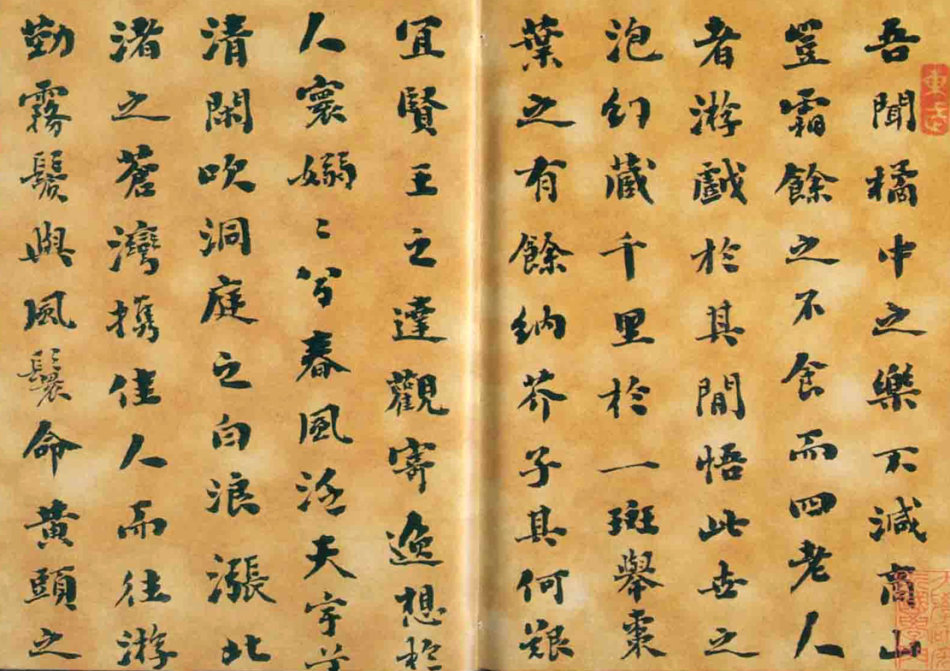 吾聞橘中之樂不減商山
豈霜餘之不食而四老人
者游戲於其間悟此世之
泡幻藏千里於一斑舉棗
葉之有餘納芥子其何艱
宜賢王之達觀寄逸想於
人寰嫋〻兮春風泛天宇兮
清閑吹洞庭之白浪漲北
渚之蒼灣攜佳人而往游
勤霧鬢與風鬟命黃頭之